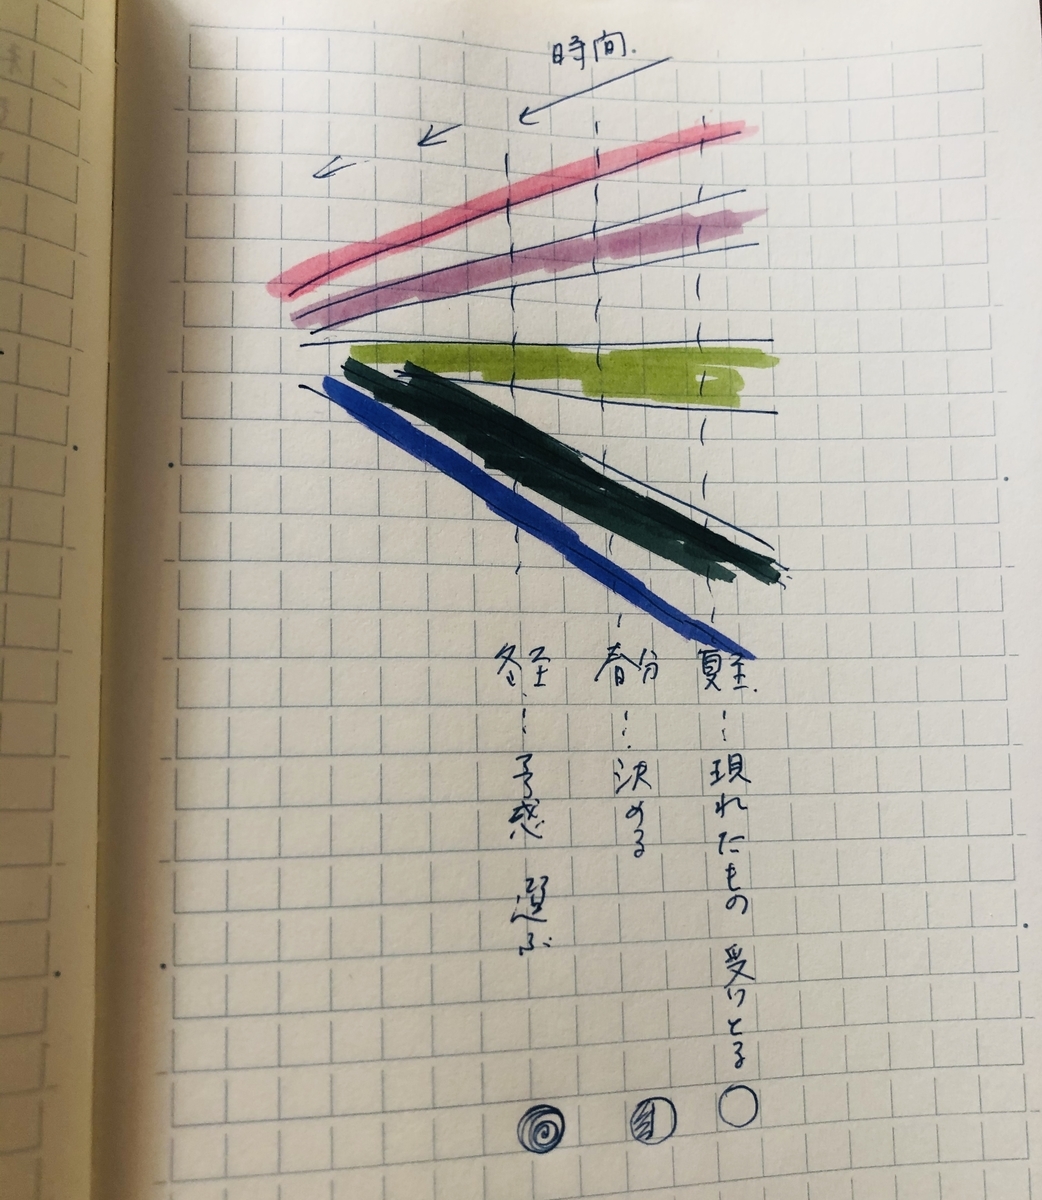 時間.
夏至.…現れたもの 受けとる
春分…決める
冬至…予感 選ぶ